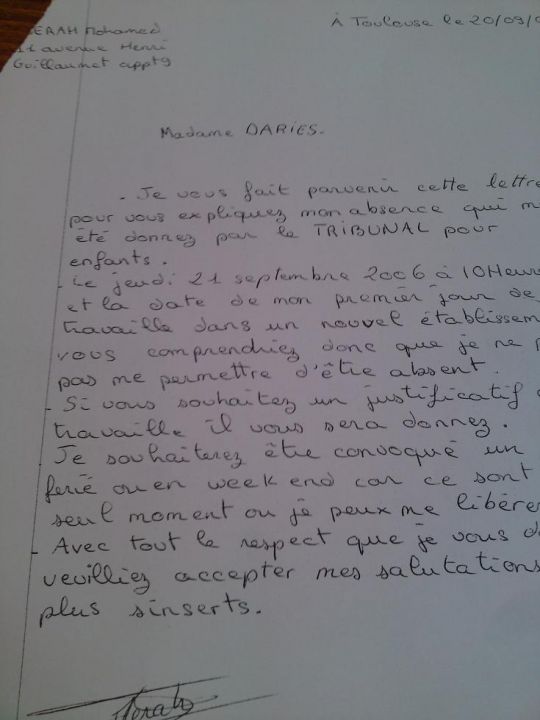 ERAH Mohamed
À Toulouse le 20/09/0
11 avenue Henri
Guillaumet appt9
Madame DARIES.
- Je vous fait parvenir cette lettre
pour vous expliquez mon absence qui m
été donnez par le TRIBUNAL pour
enfants.
- Le jeudi 21 septembre 2006 à 10Heure
et la date de mon premier jour de
travaille dans un nouvel établissem
vous comprendriez donc que je ne p
pas me permettre d'être absent.
- Si vous souhaitez un justificatif d
travaille il vous sera donnez.
Je souhaiterez être convoqué un
ferié ou en week end car ce sont
seul moment ou je peux me libére
- Avec tout le respect que je vous d
veuilliez accepter mes salutations
plus sinserts.